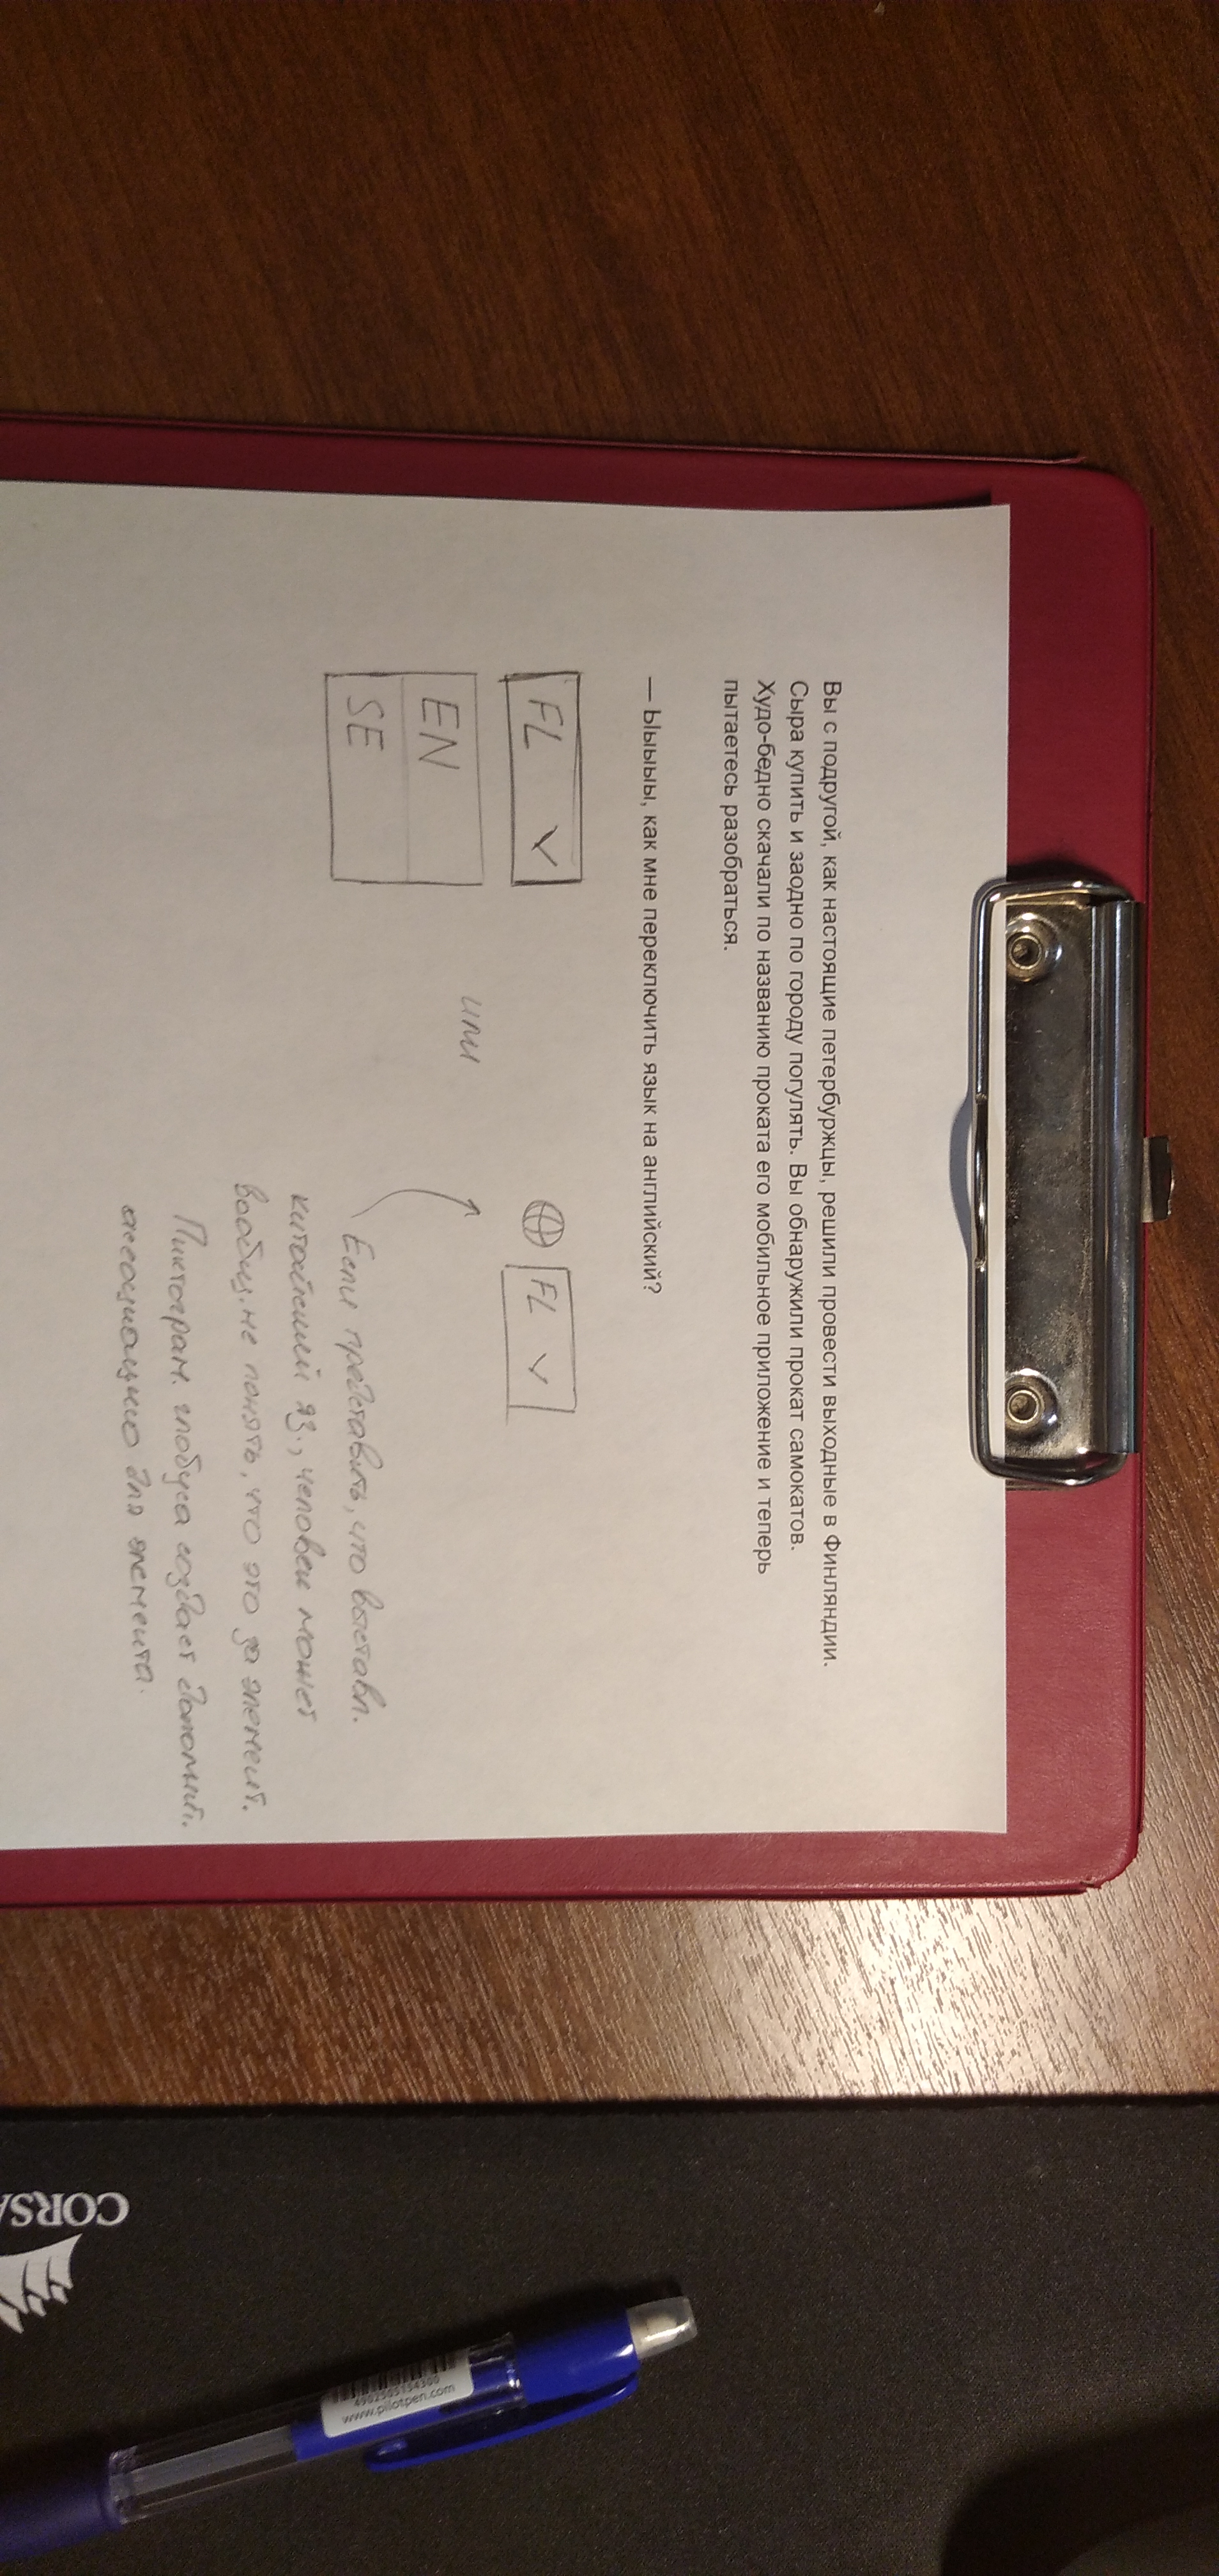 Вы с подругой, как настоящие петербуржцы, решили провести выходные в Финляндии.
Сыра купить и заодно по городу погулять. Вы обнаружили прокат самокатов.
Худо-бедно скачали по названию проката его мобильное приложение и теперь
пытаетесь разобраться.
— Ыыыыы, как мне переключить язык на английский?
FL
EN
SE
или
FL
Если представить, что выставл.
китайский яз., человек может
вообщ. не понять, что это за элемент.
Пиктограм. глобуса создаст дополнит.
ассоциацию для элемента.
www.pilotpen.com
CORSA